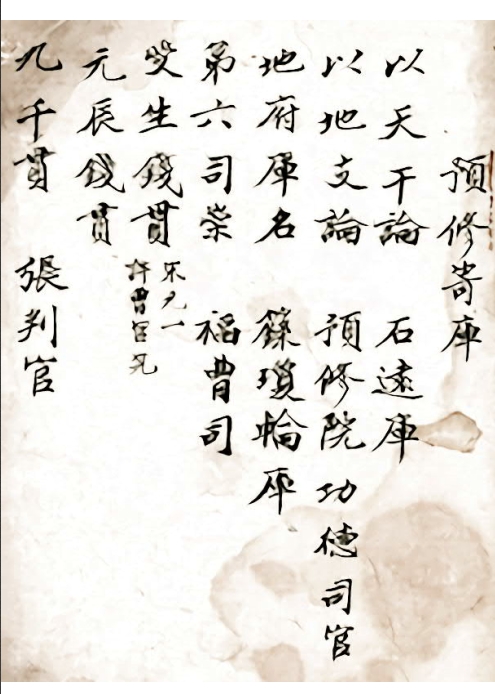 預修寄庫
以天干論 石遠庫
以地支論 預修院功德司官
地府庫名 籙瓊輪庫
第六司崇 福曹司
受生錢貫
元辰錢貫
九千貫 張判官